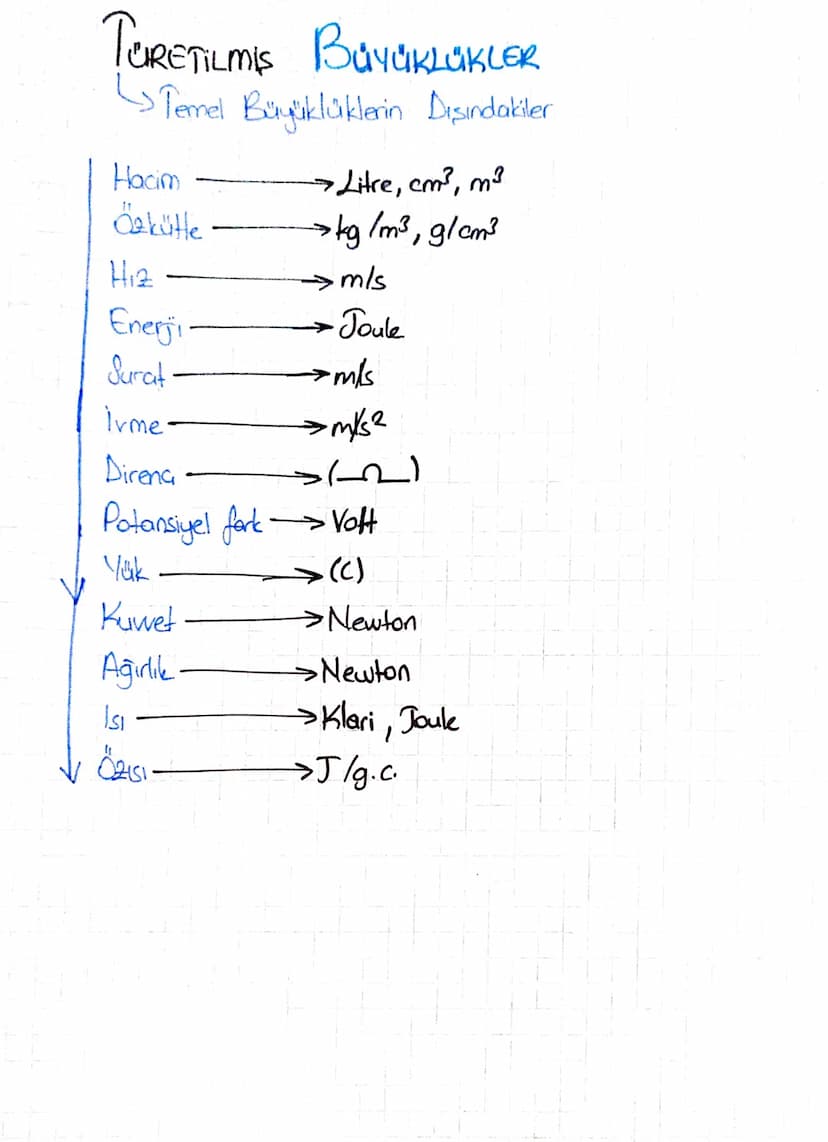 TÜRETİLMİŞ BÜYÜKLÜKLER
Temel Büyüklüklerin Dışındakiler
Hacim → Litre, cm³, m³
Özkütle → kg/m³, g/cm³
Hız → m/s
Enerji → Joule
Surat → m/s
İvme → m/s²
Direnç → (Ω)
Potansiyel fark → Volt
Yük → (C)
Kuvvet → Newton
Ağırlık → Newton
Isı → Klari, Joule
Özısı → J/g.c.